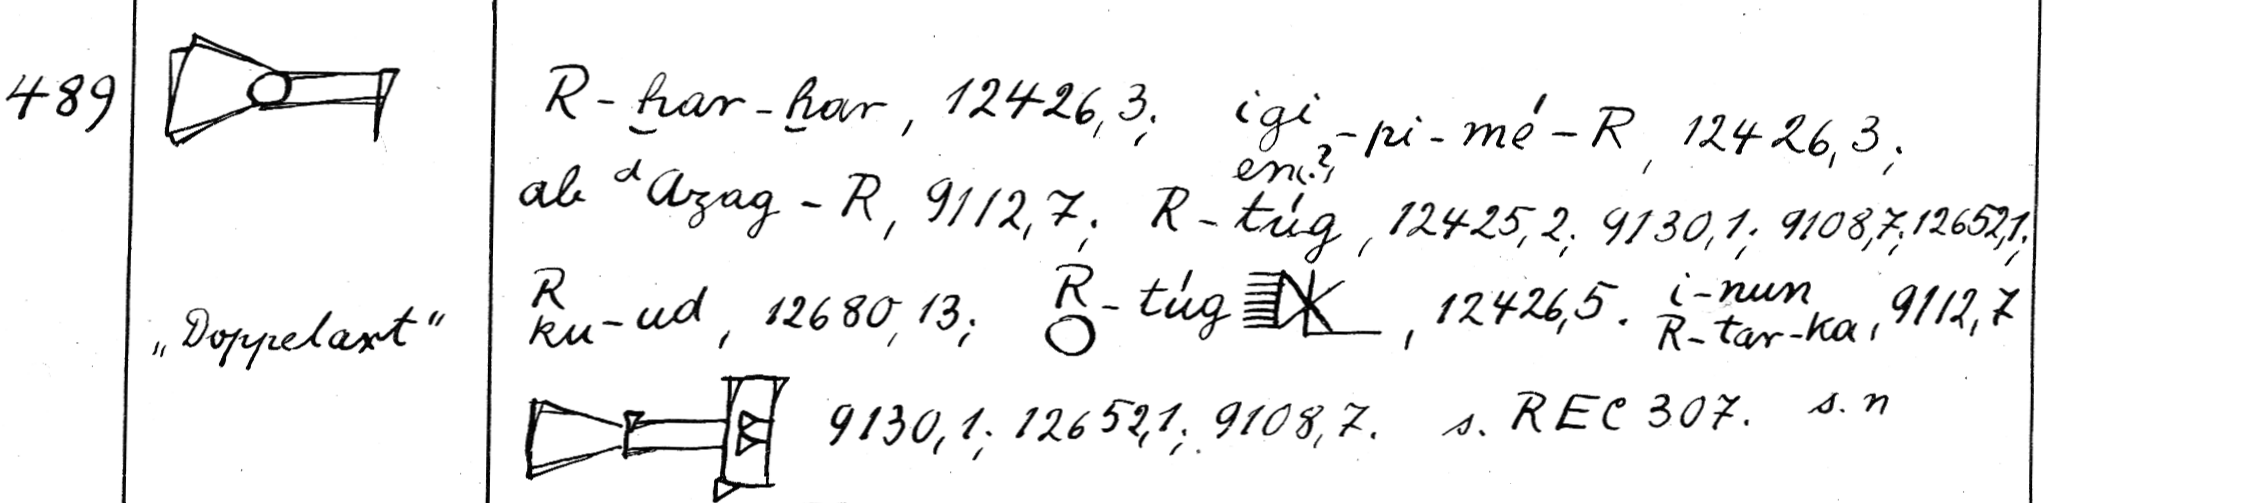 489 R-ḫar-ḫar, 12426,3; igi-pi-mé-R, 12426,3;
en?,
ab ᵈAzag-R, 9112,7; R-túg, 12425,2; 9130,1; 9108,7; 12652,1;
R
„Doppelaxt“ ku-ud, 12680,13; R-túg, 12426,5. i-nun
R-tar-ka, 9112,7
9130,1; 12652,1; 9108,7. s. REC 307. s. n